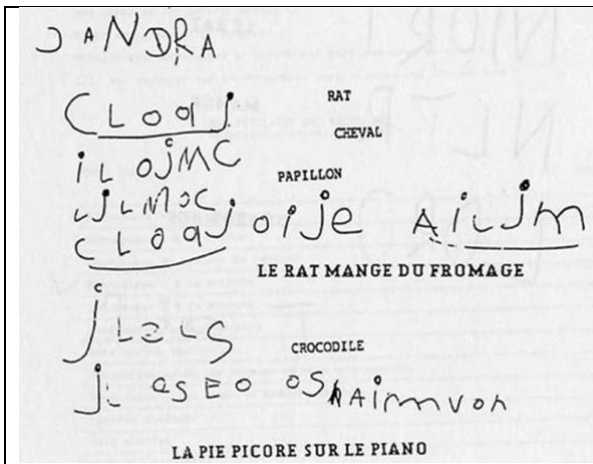 JANDRA
CLOqj RAT
CHEVAL
iLOjMC
PAPILLON
LjLMOC
CLOqj oije AiLjm
LE RAT MANGE DU FROMAGE
CROCODILE
LA PIE PICORE SUR LE PIANO